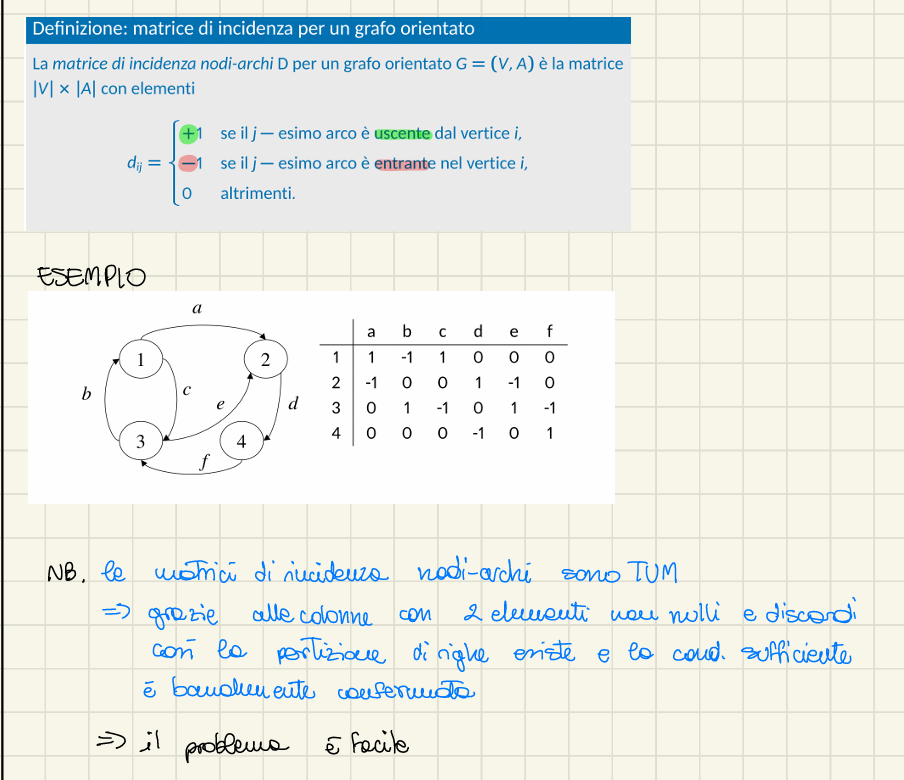 Definizione: matrice di incidenza per un grafo orientato
La matrice di incidenza nodi-archi D per un grafo orientato G = (V, A) è la matrice
|V| × |A| con elementi
+1 se il j — esimo arco è uscente dal vertice i,
d_ij = { −1 se il j — esimo arco è entrante nel vertice i,
0 altrimenti.
ESEMPIO
a
1 2
b c e d
3 4
f
a b c d e f
1 1 -1 1 0 0 0
2 -1 0 0 1 -1 0
3 0 1 -1 0 1 -1
4 0 0 0 -1 0 1
NB. le matrici di incidenza nodi-archi sono TUM
=> grazie alle colonne con 2 elementi non nulli e discordi
così la partizione di righe esiste e la cond. sufficiente
è banalmente confermata
=> il problema è facile